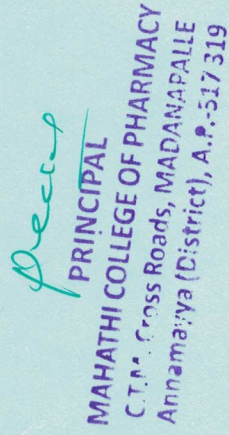 PRINCIPAL
MAHATHI COLLEGE OF PHARMACY
C.T.M. Cross Roads, MADANAPALLE
Annamayya (District), A.P.-517 319